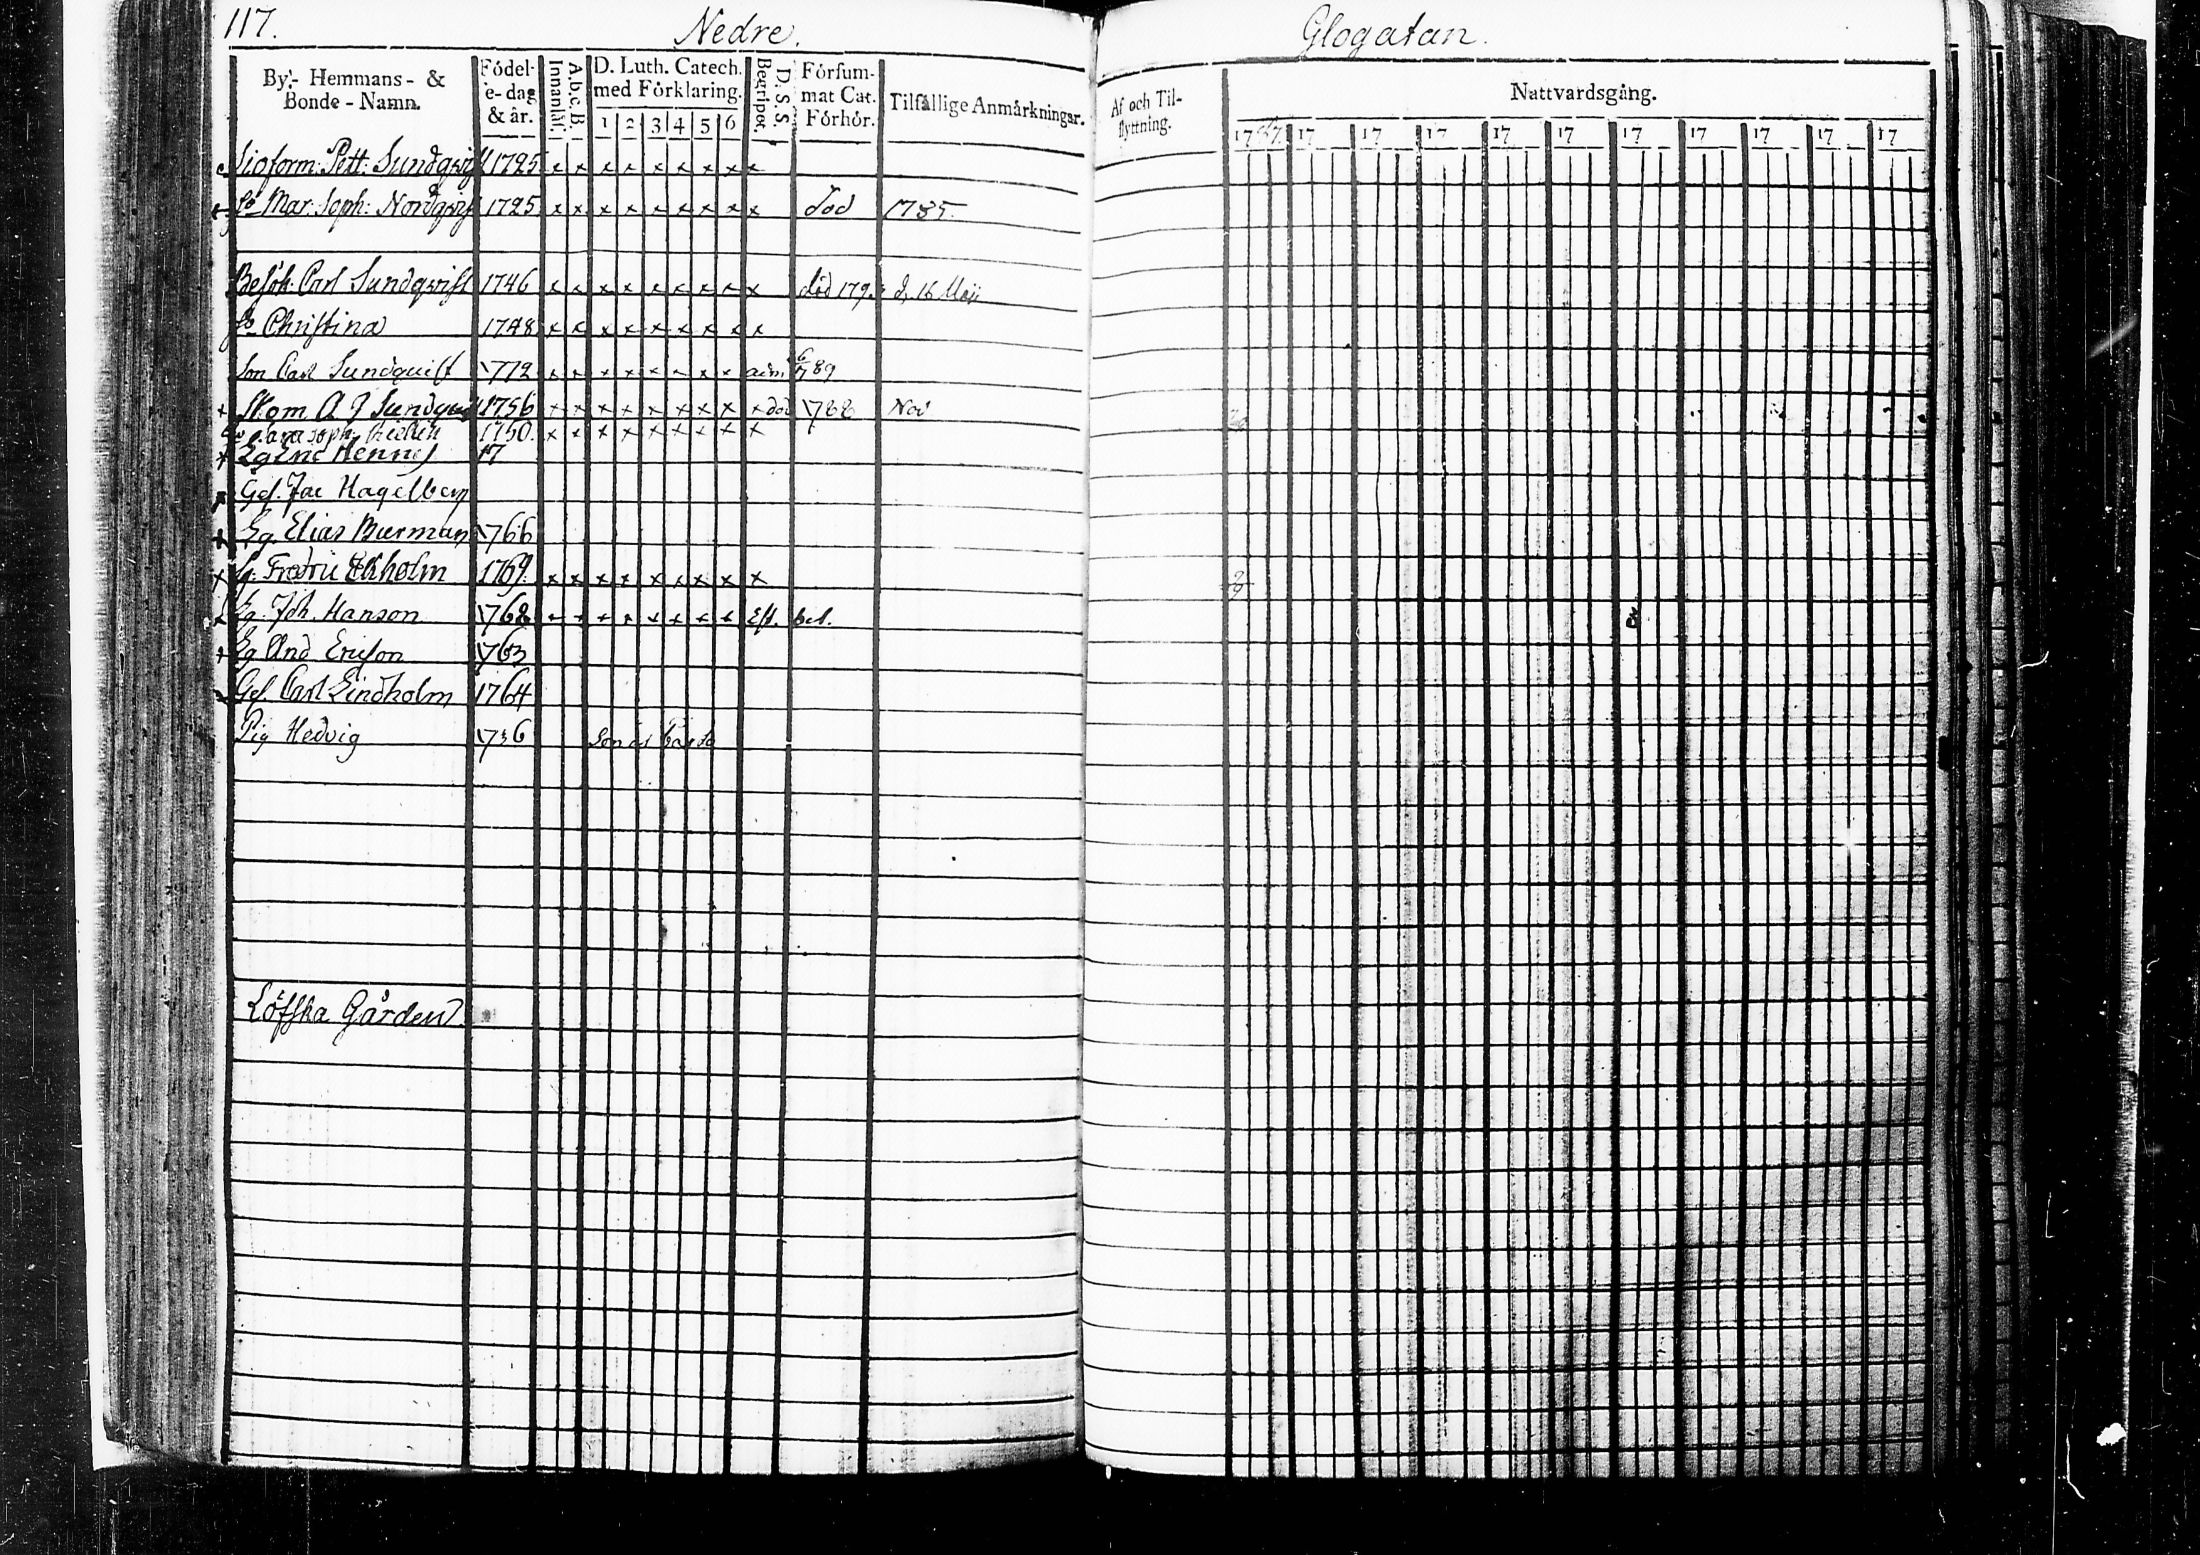 117. Nedre. Glogatan.
By- Hemmans- & Bonde-Namn. Födel- e-dag & år. Innanläs. A.b.c. B. D. Luth. Catech. med Förklaring. 1 2 3 4 5 6 Begripet. D. S. S. Försum- mat Cat. Förhör. Tilfällige Anmärkningar. Af och Til- flyttning. Nattvardsgång.
17 87. 17 17 17 17 17 17 17 17 17 17
Pett: Sundqvist 1725 x x x x x x x x x
Mar: Soph: Nordqvist 1725 x x x x x x x x x död 1785.
Besök: Carl Sundqvist 1746 x x x x x x x x x död 179 d. 16 Maji
Christina 1748 x x x x x x x x x
Son Carl Sundquist 1772 x x x x x x x x adm 6/7 89
A J 1756 x x x x x x x x x död 1788 Nov
Soph: 1750. x x x x x x x x x
Hennes 17
Ges. Jac Hagelberg
Lg. Elias Burman 1766
Lg. Fredric Ekholm 1769. x x x x x x x x x
Lg. Joh. Hanson 1768 x x x x x x x x
Lg And Ericson 1763
Ges. Carl Lindholm 1764
Pig Hedvig 1736
Löfska Gården